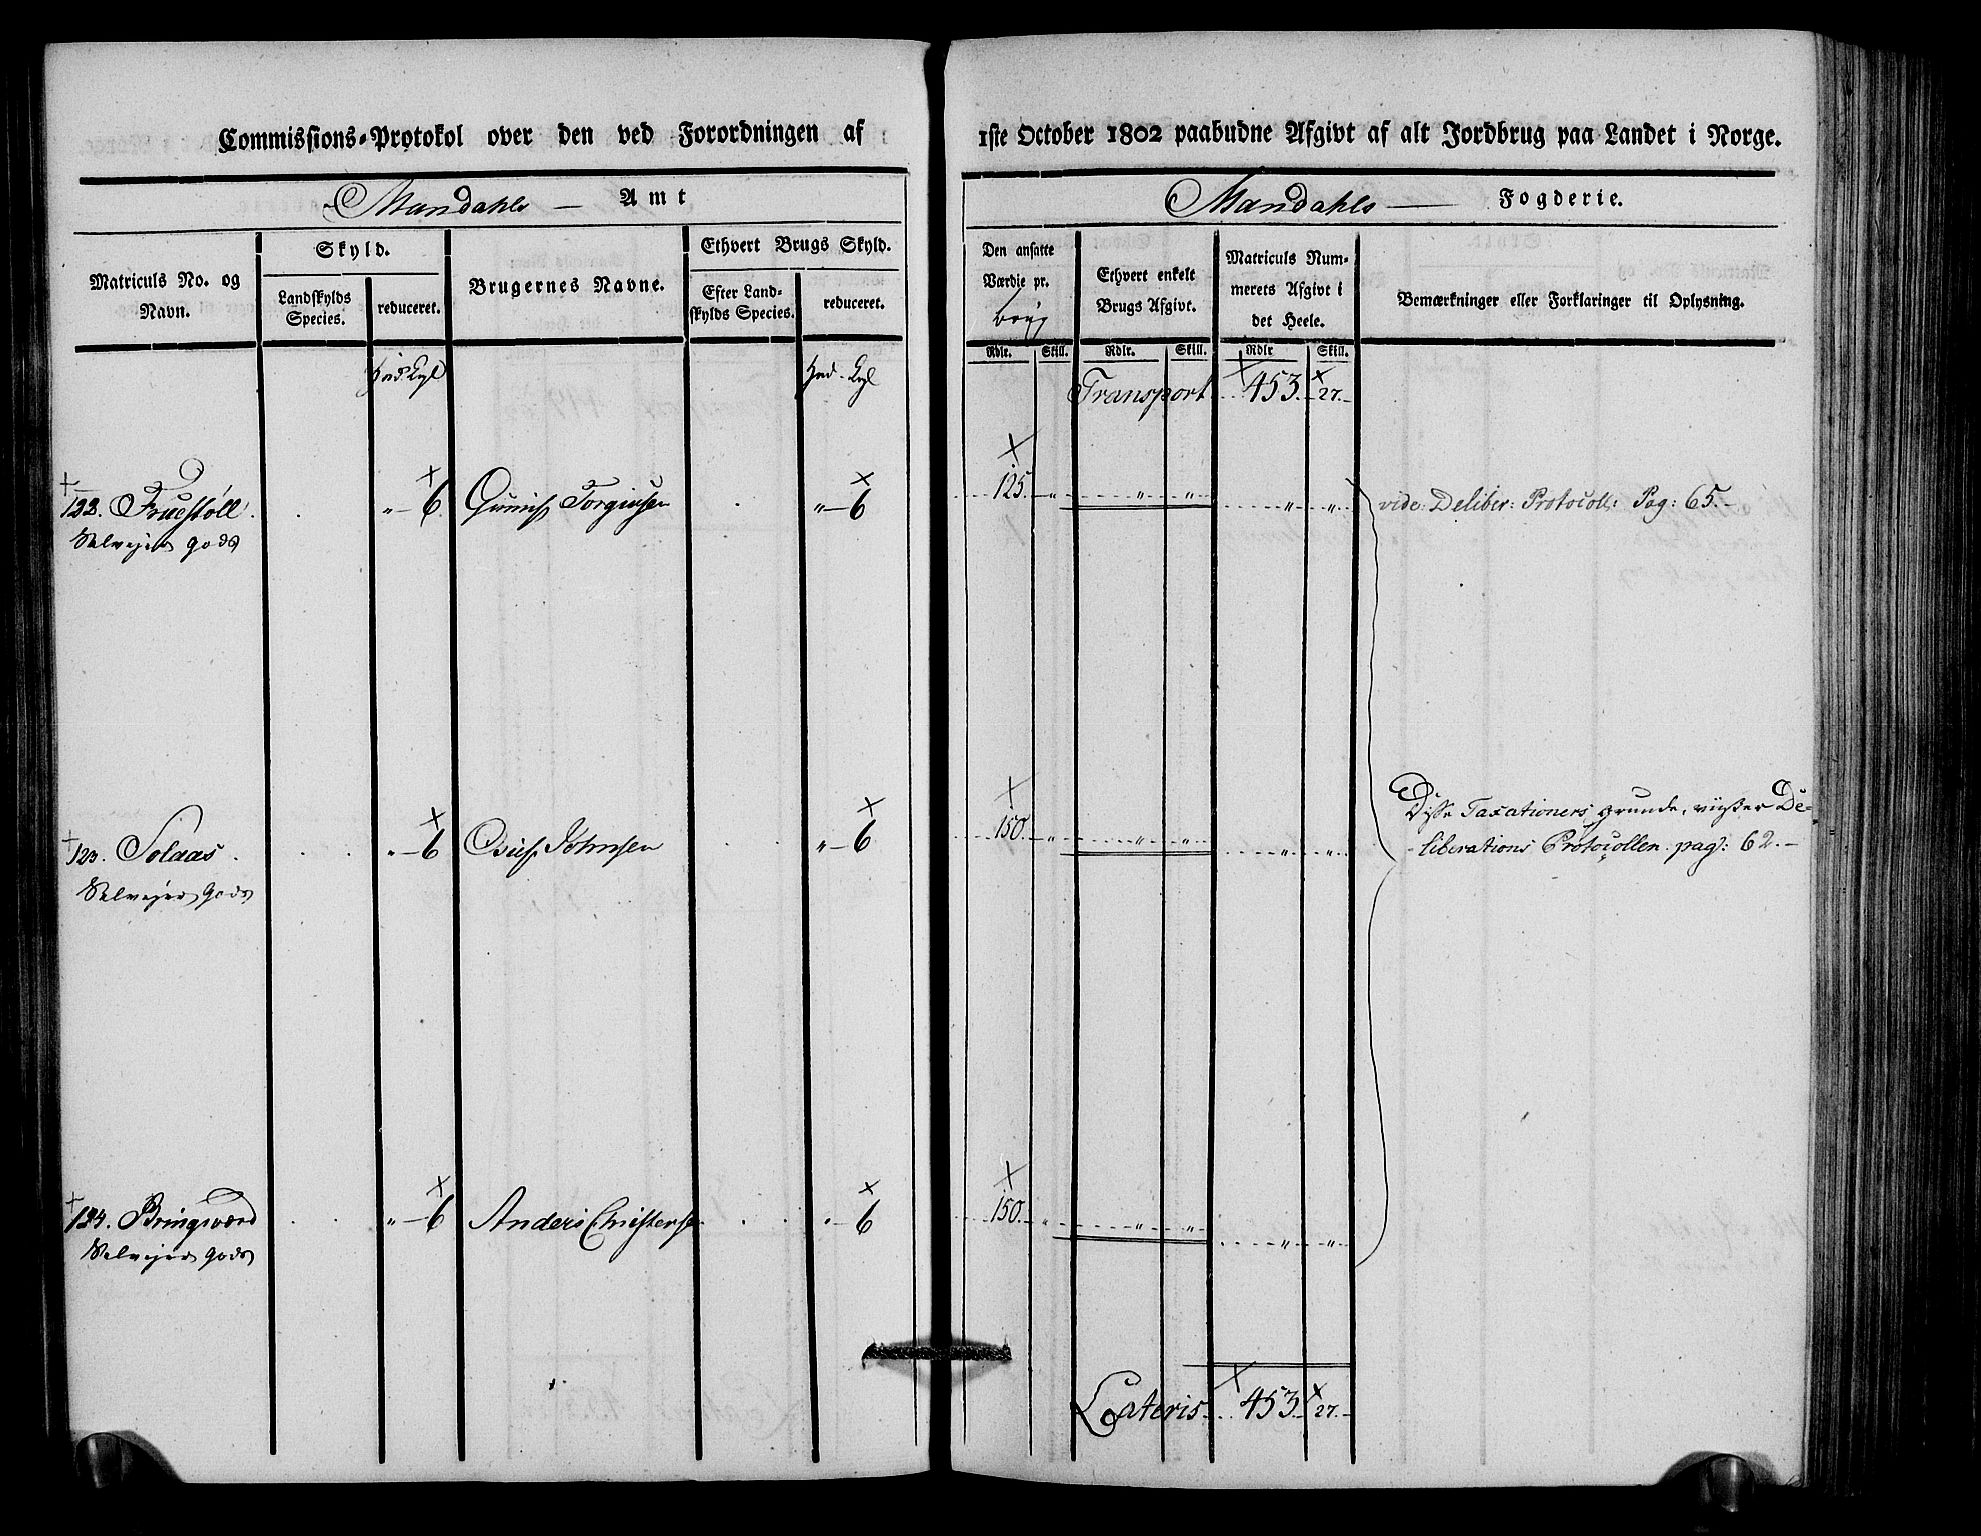 Commissions-Protokol over den ved Forordningen af 1ste October 1802 paabudne Afgivt af alt Jordbrug paa Landet i Norge.
Mandahls — Amt
Mandahls — Fogderie.
Matriculs No. og Navn.
Skyld.
Landskylds Species.
reduceret.
Brugernes Navne.
Ethvert Brugs Skyld.
Efter Landskylds Species.
reduceret.
Den ansatte Værdie pr.
Ethvert enkelt Brugs Afgivt.
Matriculs Nummerets Afgivt i det Heele.
Bemærkninger eller Forklaringer til Oplysning.
Rdlr. Skill. Rdlr. Skill. Rdlr Skill.
Transport 453. 27.
122. Fruestøll. „ 6. Torgiusen „ 6 125. „ „ „ „ „ vide: Deliber: Protocoll: Pag: 65.
Selvejer gods
123. Solaas. „ 6 Johnsen „ 6 150. „ „ „ „ „ Disse Taxationers grunde, viiser De-
liberations Protocollen pag: 62.
Selvejer Gods
124. Bringsværd „ 6 Anders Christensen „ 6 150. „ „ „ „ „
Selvejer gods
Lateris 453. 27.